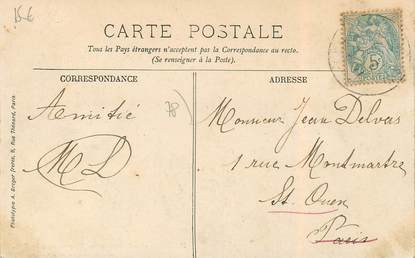 15 €
CARTE POSTALE
Tous les Pays étrangers n'acceptent pas la Correspondance au recto.
(Se renseigner à la Poste).
CORRESPONDANCE
ADRESSE
Amitié
ML
78
Monsieur Jean Delvas
1 rue Montmartre
St. Ouen
Paris
5
POSTES
Phototypie A. Breger frères, 9, Rue Thénard, Paris.